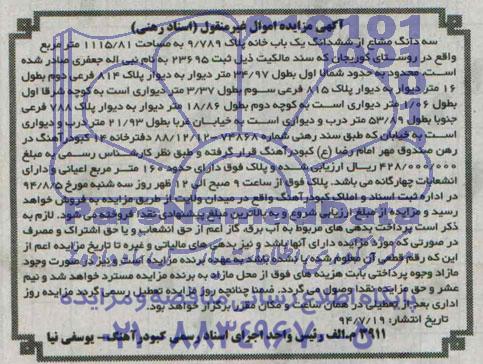 آگهی مزایده اموال غیرمنقول (اسناد رهنی)
سه دانگ مشاع از ششدانگ یک باب خانه پلاک ۹/۷۸۹ به مساحت ۱۱۱۵/۸۱ متر مربع
واقع در روستای کوریجان که سند مالکیت ذیل ثبت ۲۳۶۹۵ به نام نبی اله جعفری صادر شده
است. محدود به حدود شمالا اول بطول ۳۴/۹۷ متر دیوار به دیوار پلاک ۸۱۴ فرعی دوم بطول
۱۶ متر دیوار به دیوار پلاک ۸۱۵ فرعی سوم بطول ۳/۳۷ متر دیواری است به کوچه شرقا اول
بطول ۱/۰۶ متر دیواری است به کوچه دوم بطول ۱۸/۸۶ متر دیوار به دیوار پلاک ۷۸۸ فرعی
جنوبا بطول ۵۳/۸۹ متر درب و دیواری است به خیابان غربا بطول ۲۱/۹۳ متر درب و دیواری
است به خیابان که طبق سند رهنی شماره ۷۳۸۶۸-۸۸/۱۲/۱۲ دفترخانه ۱۴ کبودرآهنگ در
رهن صندوق مهر امام رضا (ع) کبودرآهنگ قرار گرفته و طبق نظر کارشناس رسمی به مبلغ
۴۲۸/۰۰۰/۰۰۰ ریال ارزیابی شده و پلاک فوق دارای حدود ۱۶۰ متر مربع اعیانی و دارای
انشعابات چهارگانه می باشد. پلاک فوق از ساعت ۹ صبح الی ۱۲ ظهر روز سه شنبه مورخ ۹۴/۸/۵
در اداره ثبت اسناد و املاک کبودرآهنگ واقع در میدان ولایت از طریق مزایده به فروش خواهد
رسید و مزایده از مبلغ ارزیابی شروع و به بالاترین مبلغ پیشنهادی نقدا فروخته می شود. لازم به
ذکر است پرداخت بدهی های مربوط به آب، برق، گاز اعم از حق انشعاب و یا حق اشتراک و مصرف
در صورتی که مورد مزایده دارای آنها باشد و نیز بدهی های مالیاتی و غیره تا تاریخ مزایده اعم از
این که رقم قطعی آن معلوم شده یا نشده باشد به عهده برنده مزایده است و در صورت وجود
مازاد وجوه پرداختی بابت هزینه های فوق از محل مازاد به برنده مزایده مسترد خواهد شد و نیم
عشر و حق مزایده نقدا وصول می گردد. ضمنا چنانچه روز مزایده تعطیل رسمی گردد مزایده روز
اداری بعد از تعطیلی در همان ساعت و مکان مقرر برگزار خواهد بود.
تاریخ انتشار: ۹۴/۷/۱۹
۳۹۱۱ م-الف رئیس واحد اجرای اسناد رسمی کبودرآهنگ – یوسفی نیا
پایگاه اطلاع رسانی مناقصه و مزایده
۰۲۱-۸۸۳۴۹۶۷۰-۵